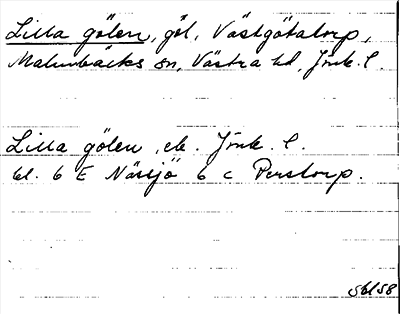 Lilla gölen, göl, Västgötatorp,
Malmbäcks sn, Västra hd, Jönk. l.
Lilla gölen, ek. Jönk. l.
bl. 6 E Nässjö 6 c Perstorp.